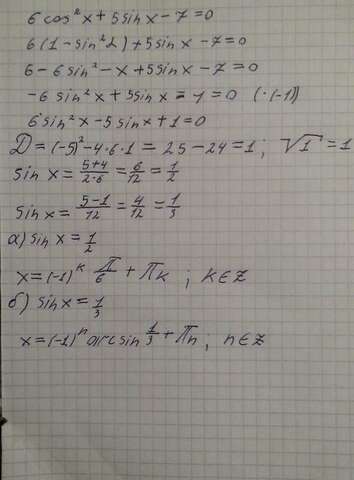 6 cos²x + 5 sin x - 7 = 0
6 (1 - sin²2) + 5 sin x - 7 = 0
6 - 6 sin² - x + 5 sin x - 7 = 0
-6 sin²x + 5 sin x - 1 = 0 (·(-1))
6 sin²x - 5 sin x + 1 = 0
D = (-5)² - 4·6·1 = 25 - 24 = 1; √1 = 1
sin x = (5+4)/(2·6) = 6/12 = 1/2
sin x = (5-1)/12 = 4/12 = 1/3
а) sin x = 1/2
x = (-1)^k π/6 + πk ; k∈Z
б) sin x = 1/3
x = (-1)^n arcsin 1/3 + πn, n∈Z